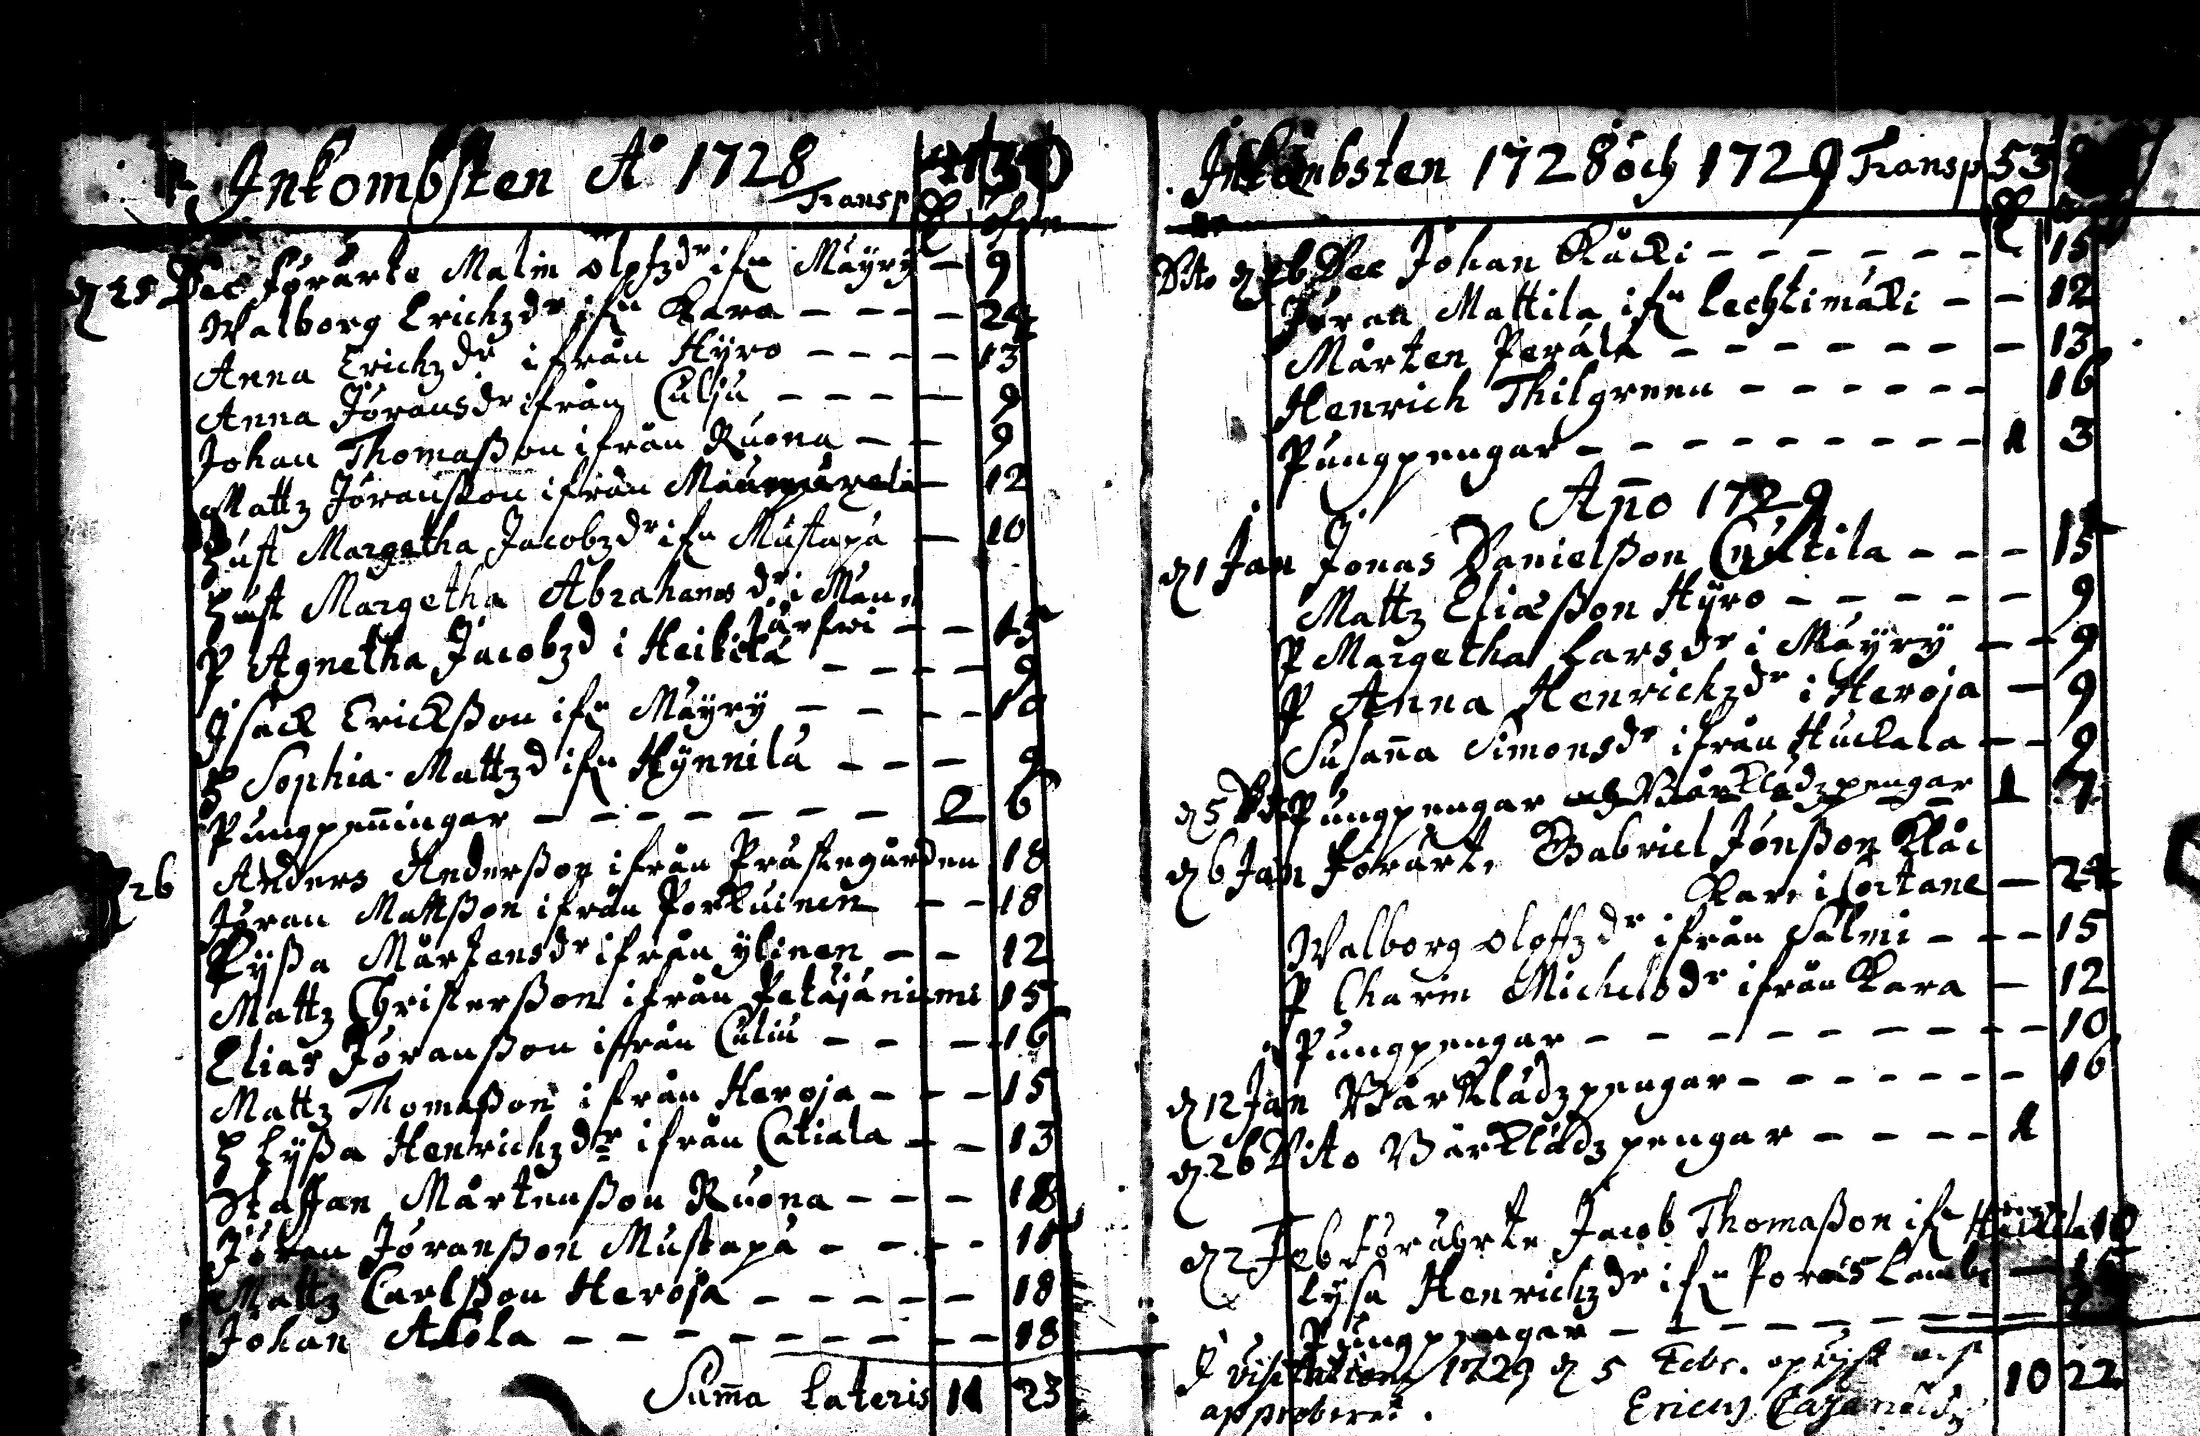 Inkombsten Aº 1728 Transp
25 Dec förärte Malin olofzdr ifn Mäyry — 9
Walborg Erichzdr ifn Kara — — — — 24
Anna Erichzdr ifrån Hÿro — — — — 13
Anna Jöransdr ifrån Culju — — — — 9
Johan Thomaßon ifrån Ruona — — 9
Mattz Joranßon ifrån — 12
Hust Margetha Jacobzdr ifn Mustapä — 10
Hust Margetha Abrahamsdr i
järfwi — — 15
P Agnetha Jacobzd i Heikilä — — — — 9
Isack Erickßon ifn Mäyrÿ — — — — 10
H Sophia Mattzd ifn Hÿnnilä — — — 9
Pungpenningar — — — — — — — 2 6
26 Anders Anderßon ifrån Prästegården 18
Jöran Mattßon ifrån Porkuinen — — 18
Lÿßa Mårtensdr ifrån ylinen — — 12
Mattz Christerßon ifrån Petäjäniemi 15
Elias Jöranßon ifrån Culiu — — — 16
Mattz Thomaßon ifrån Heroja — — — 15
H Lÿßa Henrichzdr ifrån Catiala — — 13
Staffan Mårtenßon Ruona — — — 18
Jöran Jöranßon Mustapä — — — —
Mattz Carlßon Heroja — — — — — 18
Johan Alola — — — — — — — — — 18
Summa Lateris 11 23
Inkombsten 1728 och 1729 Transp 53
Dito 26 Dec Johan — — — — — — — 15
Jöran Mattila ifn Lechtimäki — — 12
Mårten Perälä — — — — — — — — 13
Henrich Thilgreen — — — — — — 16
Pungpengar — — — — — — — — — 1 3
Año 1729
1 Jan Jonas Danielßon — — — 15
Mattz Eliæßon Hÿro — — — — — 9
P Margetha Larsdr i Mäyrÿ — — 9
P Anna Henrichzdr i Heroja — 9
Susanna Simonsdr ifrån Huckala — — 9
5 Pungpengar och Bårklädzpengar 1 7
6 Jan Förärte Gabriel Jönßon
i Cortane — 24
Walborg oloffzdr ifrån Salmi — — — 15
P Charin Michelsdr ifrån Kara — 12
Pungpengar — — — — — — — — — 10
12 Jan Bårklädzpengar — — — — — — — 16
26 Dito Bårklädzpengar — — — — 1
2 Feb Förährte Jacob Thomaßon ifn
Lysa Henrichzdr ifn —
Pungpengar — — — — — — — — —
Visitation 1729 5 Febr.
approberat. Ericus 10 22